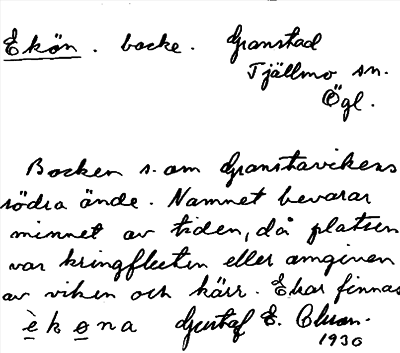 Ekön. backe. Granstad
Tjällmo sn.
Ögl.
Backen s. om Granstavikens
södra ände. Namnet bevarar
minnet av tiden, då platsen
var kringfluten eller omgiven
av viken och kärr. Ekar finnas
èkøna Gustaf E. Olson.
1930